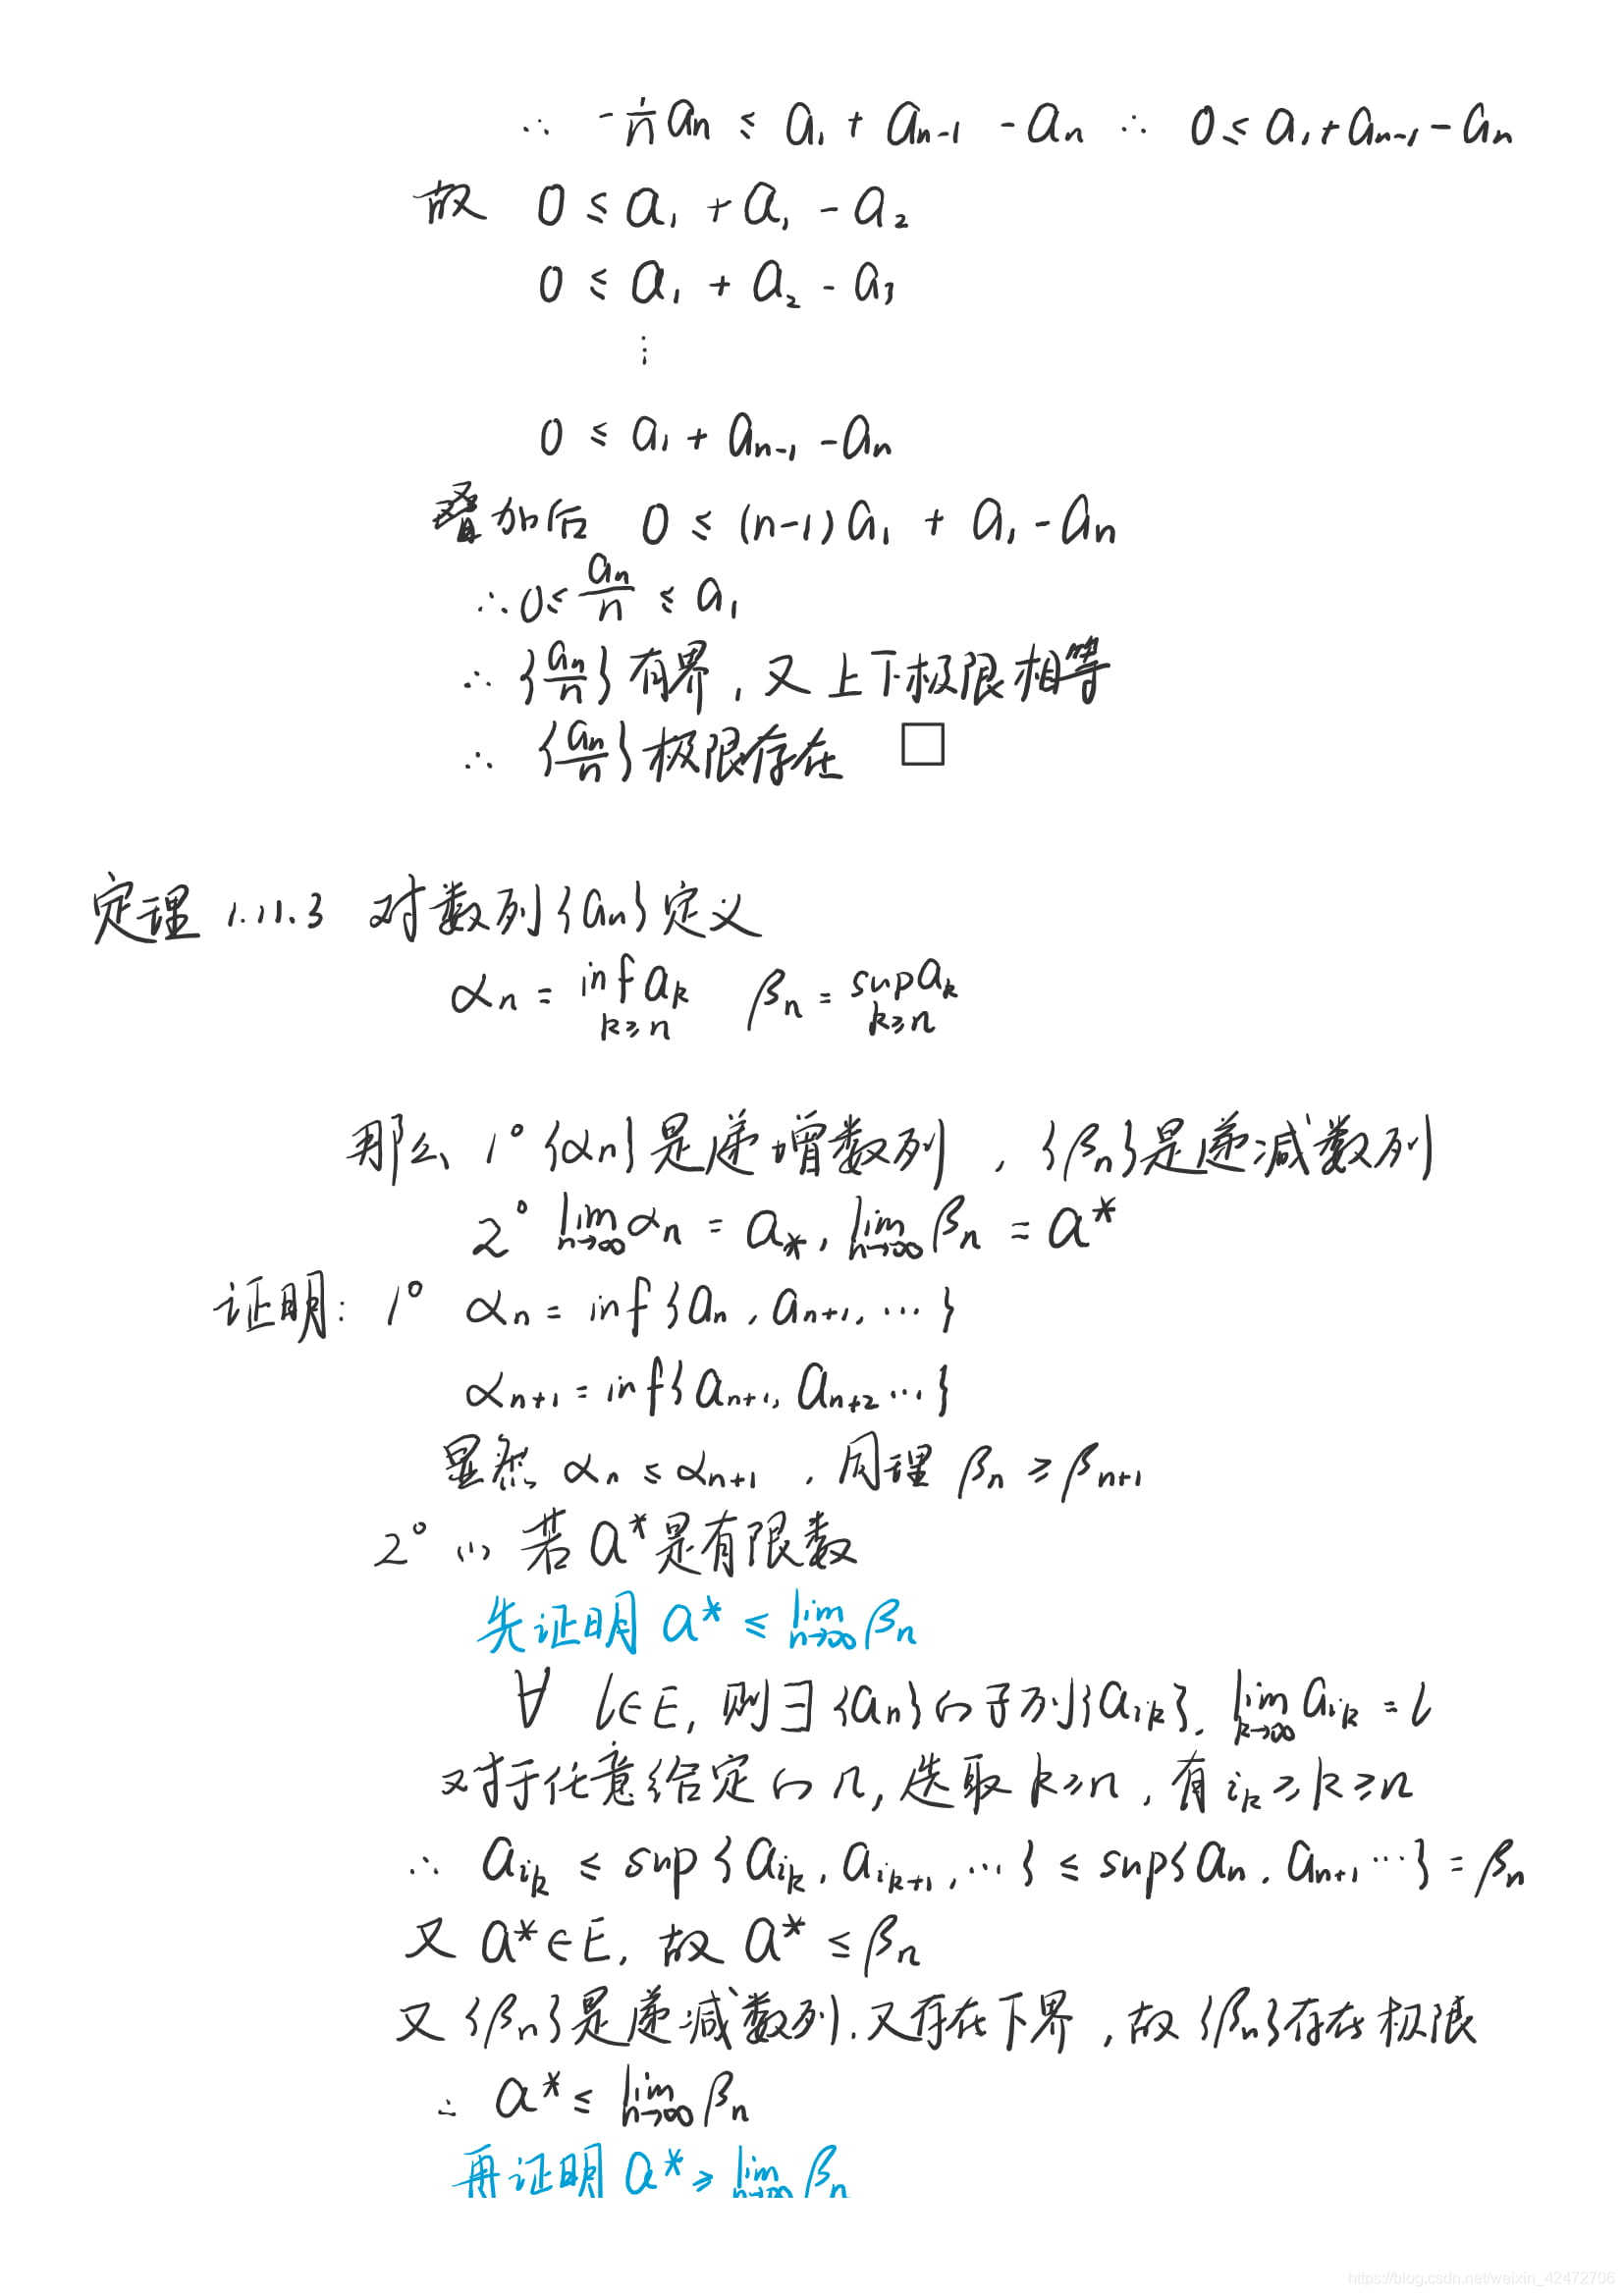 ∴ -1/n aₙ ≤ a₁ + aₙ₋₁ - aₙ ∴ 0 ≤ a₁ + aₙ₋₁ - aₙ
故 0 ≤ a₁ + a₁ - a₂
0 ≤ a₁ + a₂ - a₃
⋮
0 ≤ a₁ + aₙ₋₁ - aₙ
叠加后 0 ≤ (n-1)a₁ + a₁ - aₙ
∴ 0 ≤ aₙ/n ≤ a₁
∴ {aₙ/n} 有界, 又上下极限相等
∴ {aₙ/n} 极限存在 □
定理 1.11.3 对数列{aₙ}定义
αₙ = inf_{k≥n} a_k βₙ = sup_{k≥n} a_k
那么 1° {αₙ}是递增数列, {βₙ}是递减数列
2° lim_{n→∞} αₙ = a_*, lim_{n→∞} βₙ = a*
证明: 1° αₙ = inf{aₙ, aₙ₊₁, …}
αₙ₊₁ = inf{aₙ₊₁, aₙ₊₂ …}
显然 αₙ ≤ αₙ₊₁, 同理 βₙ ≥ βₙ₊₁
2° (1) 若 a* 是有限数
先证明 a* ≤ lim_{n→∞} βₙ
∀ l∈E, 则∃{aₙ}的子列{a_{i_k}}. lim_{k→∞} a_{i_k} = l
又对于任意给定的n, 选取 k≥n, 有 i_k ≥ k ≥ n
∴ a_{i_k} ≤ sup{a_{i_k}, a_{i_{k+1}}, …} ≤ sup{aₙ, aₙ₊₁ …} = βₙ
又 a*∈E, 故 a* ≤ βₙ
又 {βₙ}是递减数列. 又存在下界, 故{βₙ}存在极限
∴ a* ≤ lim_{n→∞} βₙ
再证明 a* ≥ lim_{n→∞} βₙ
https://blog.csdn.net/weixin_42472706